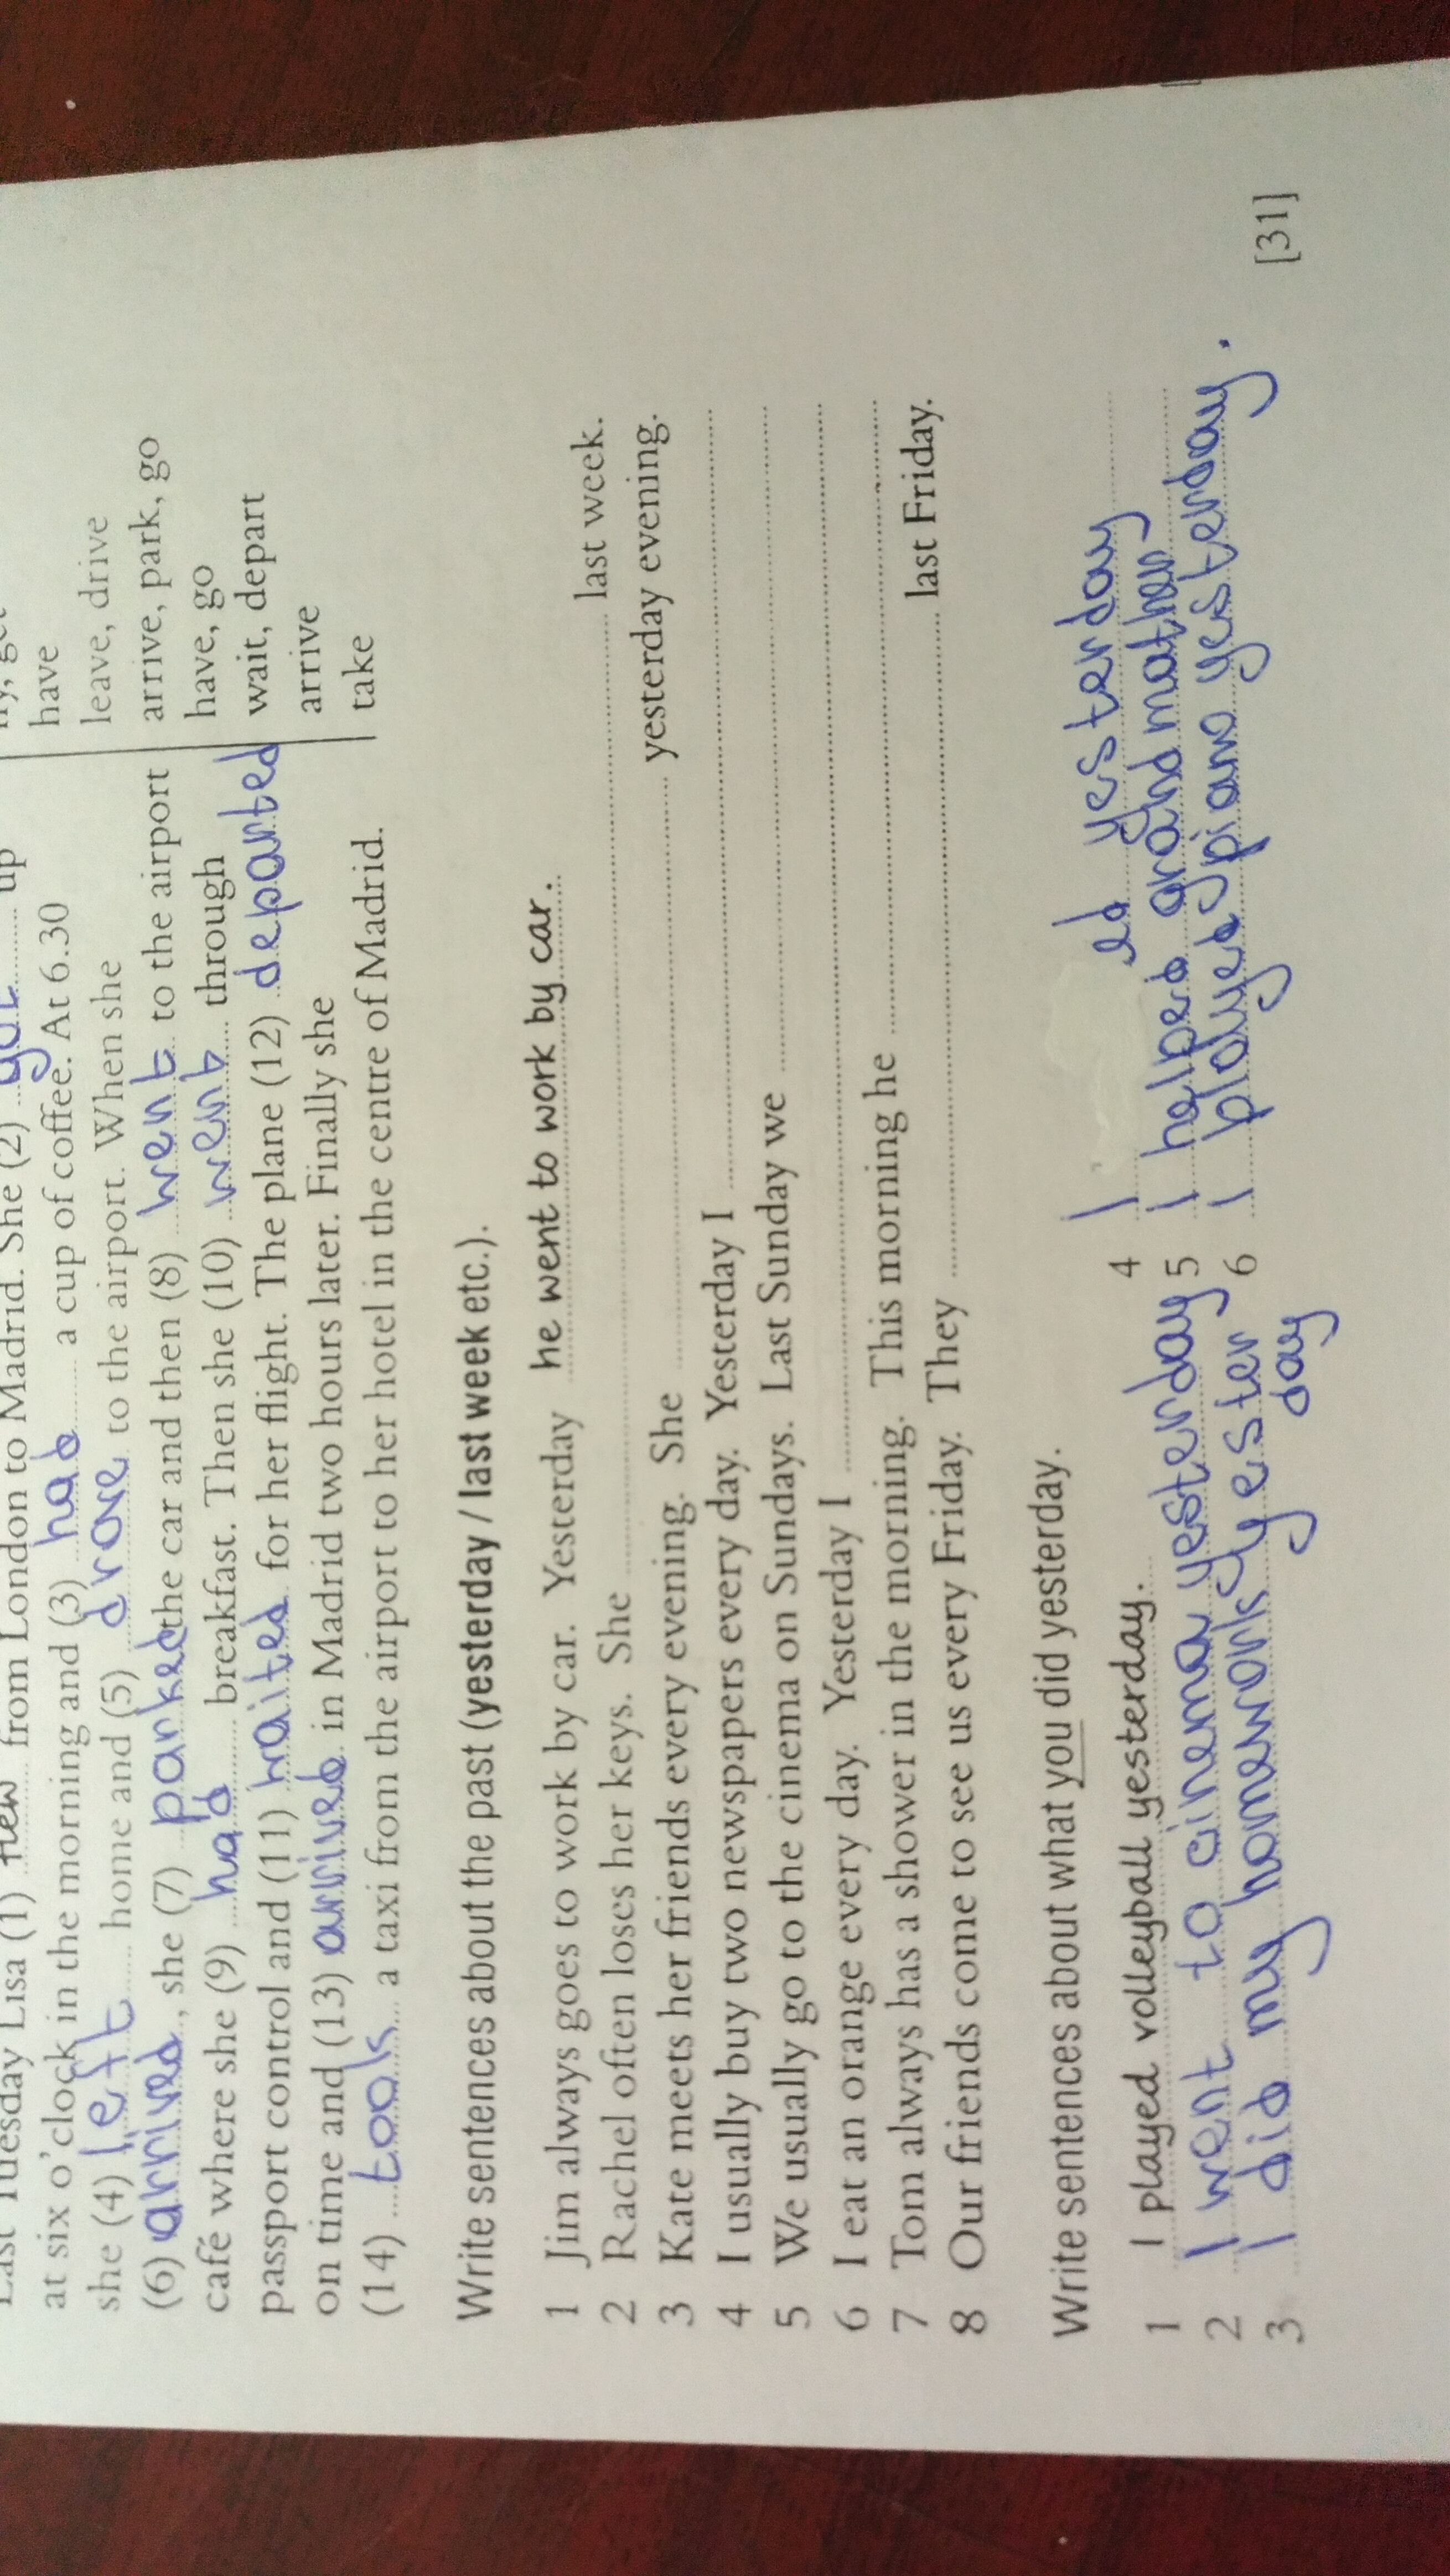 Last Tuesday Lisa (1) flew from London to Madrid. She (2) got up
have
at six o'clock in the morning and (3) had a cup of coffee. At 6.30
leave, drive
she (4) left home and (5) drove to the airport. When she
arrive, park, go
(6) arrived, she (7) parked the car and then (8) went to the airport
have, go
café where she (9) had breakfast. Then she (10) went through
wait, depart
passport control and (11) waited for her flight. The plane (12) departed
arrive
on time and (13) arrived in Madrid two hours later. Finally she
take
(14) took a taxi from the airport to her hotel in the centre of Madrid.
Write sentences about the past (yesterday / last week etc.).
1 Jim always goes to work by car. Yesterday he went to work by car.
2 Rachel often loses her keys. She last week.
3 Kate meets her friends every evening. She yesterday evening.
4 I usually buy two newspapers every day. Yesterday I
5 We usually go to the cinema on Sundays. Last Sunday we
6 I eat an orange every day. Yesterday I
7 Tom always has a shower in the morning. This morning he
8 Our friends come to see us every Friday. They last Friday.
Write sentences about what you did yesterday.
1 I played volleyball yesterday.
2 I went to cinema yesterday
3 I did my homework yester
day
4 I ed yesterday
5 I helped grandmother
6 I played piano yesterday.
[31]